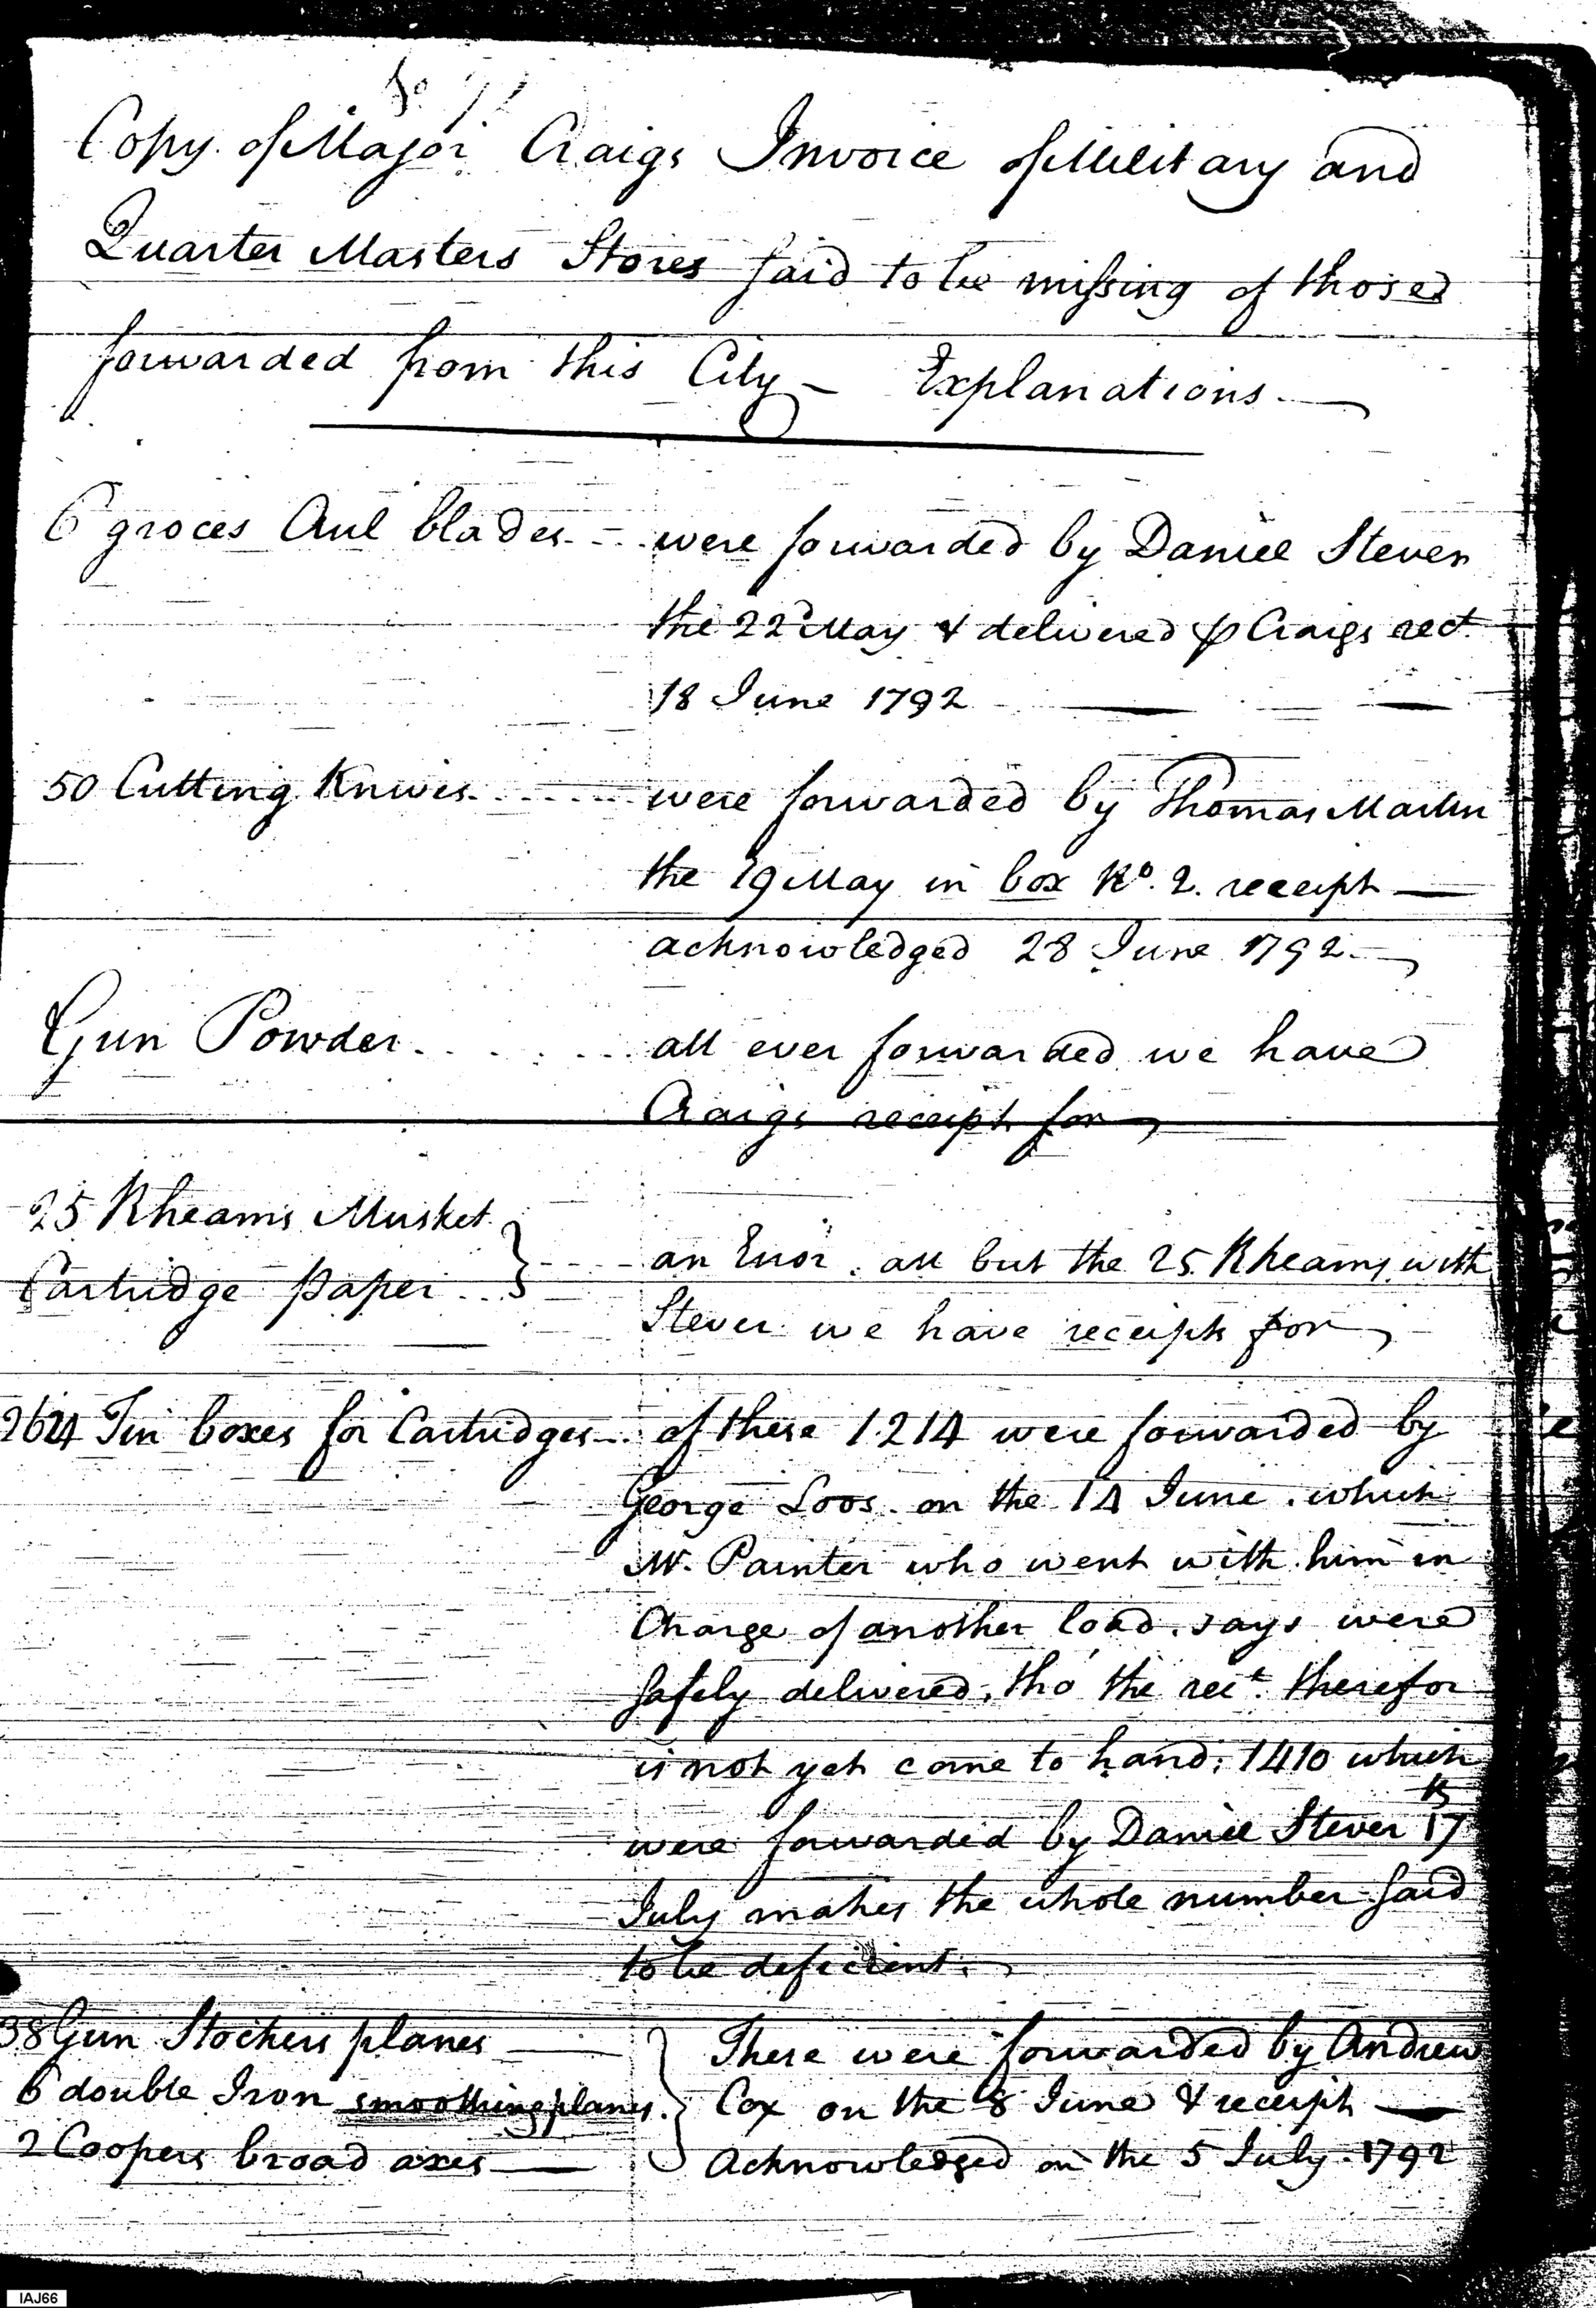 Copy of Major Craigs Invoice of Military and
Quarter Masters Stores said to be missing of those
forwarded from this City – Explanations. —
6 groces Aul blades were forwarded by Daniel Stever
the 22d May & delivered ⅌ Craigs rect.
18 June 1792 —
50 Cutting Knives were forwarded by Thomas Martin
the 19 May in box No. 2. receipt —
acknowledged 28 June 1792. —
Gun Powder all ever forwarded we have
Craigs receipt for
25 Rheams Musket
Cartridge paper } an Error. all but the 25 Rheams with
Stever we have receipts for
2624 Tin boxes for Cartridges of these 1.214 were forwarded by
George Loos. on the 14 June. which
Mr. Painter who went with him in
Charge of another load. says were
safely delivered, tho' the rect. therefor
is not yet come to hand; 1410 which
were forwarded by Daniel Stever 17
July makes the whole number said
to be deficient.
38 Gun Stockers planes — } These were forwarded by Andrew
6 double Iron smoothing planes. Cox on the 8 June & receipt —
2 Coopers broad axes — Acknowledged on the 5 July. 1792
IAJ66